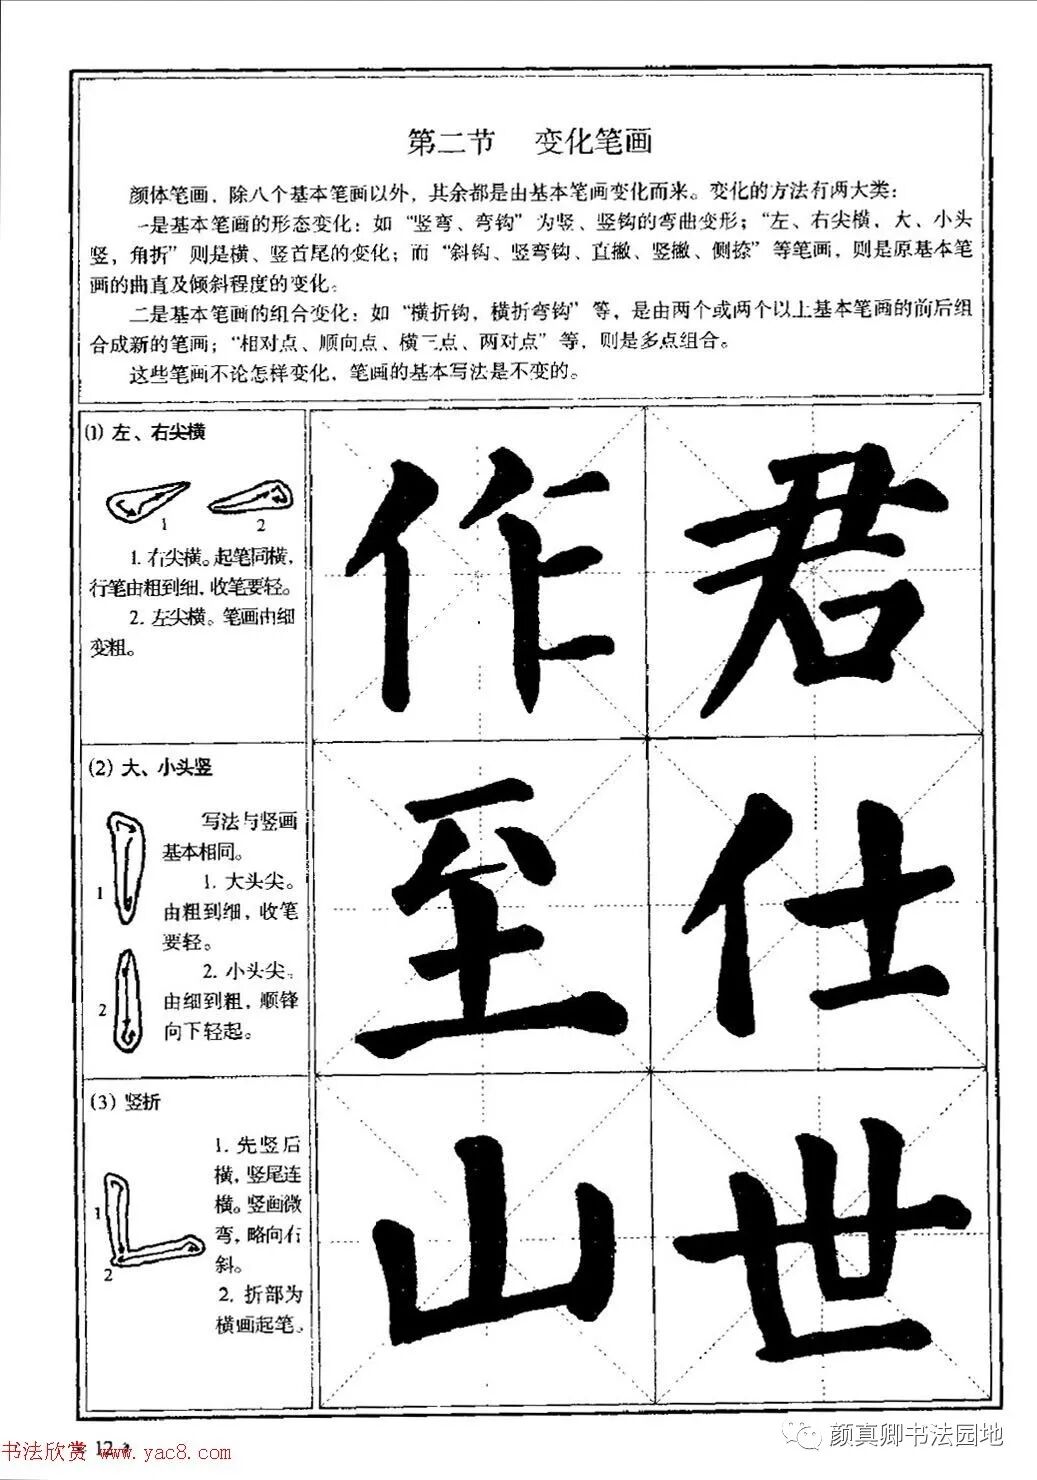 第二节 变化笔画
颜体笔画，除八个基本笔画以外，其余都是由基本笔画变化而来。变化的方法有两大类：
一是基本笔画的形态变化：如“竖弯、弯钩”为竖、竖钩的弯曲变形；“左、右尖横，大、小头
竖，角折”则是横、竖首尾的变化；而“斜钩、竖弯钩、直撇、竖撇、侧捺”等笔画，则是原基本笔
画的曲直及倾斜程度的变化。
二是基本笔画的组合变化：如“横折钩，横折弯钩”等，是由两个或两个以上基本笔画的前后组
合成新的笔画；“相对点、顺向点、横三点、两对点”等，则是多点组合。
这些笔画不论怎样变化，笔画的基本写法是不变的。
(1) 左、右尖横
1 2
1. 右尖横。起笔同横，
行笔由粗到细，收笔要轻。
2. 左尖横。笔画由细
变粗。
作 君
(2) 大、小头竖
写法与竖画
基本相同。
1. 大头尖。
1
由粗到细，收笔
要轻。
2. 小头尖。
2
由细到粗，顺锋
向下轻起。
至 仕
(3) 竖折
1. 先竖后
横，竖尾连
1
横。竖画微
弯，略向右
斜。
2
2. 折部为
横画起笔。
山 世
12
书法欣赏 www.yac8.com
颜真卿书法园地